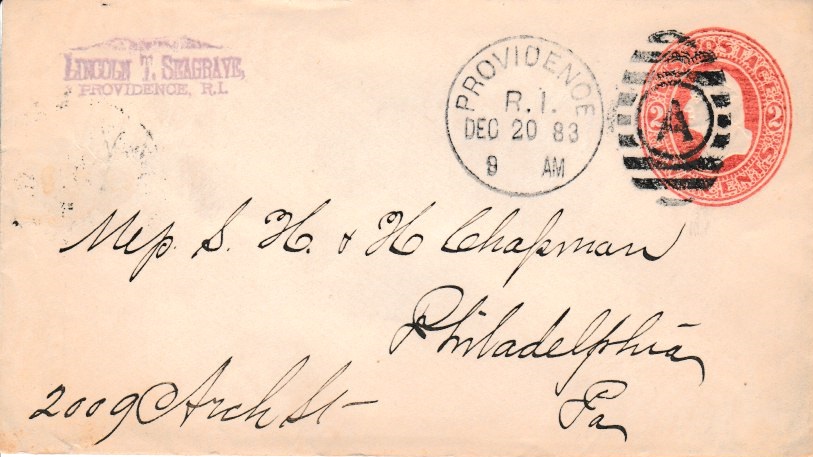 LINCOLN T. SEAGRAVE,
PROVIDENCE, R.I.
PROVIDENCE
R.I.
DEC 20 83
9 AM
A
2 POSTAGE 2
Mess. S. H. & H Chapman
Philadelphia
Pa
2009 Arch St